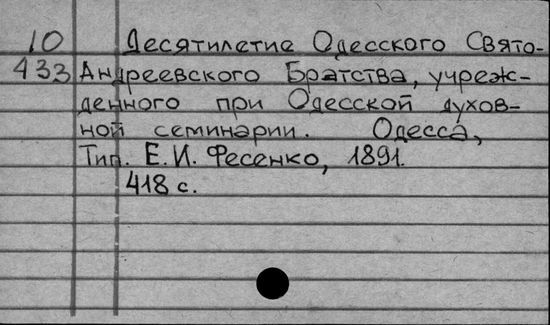 10 Десятилетие Одесского Свято-
433 Андреевского Братства, учреж-
денного при Одесской духов-
ной семинарии. Одесса,
Тип. Е.И. Фесенко, 1891.
418 с.